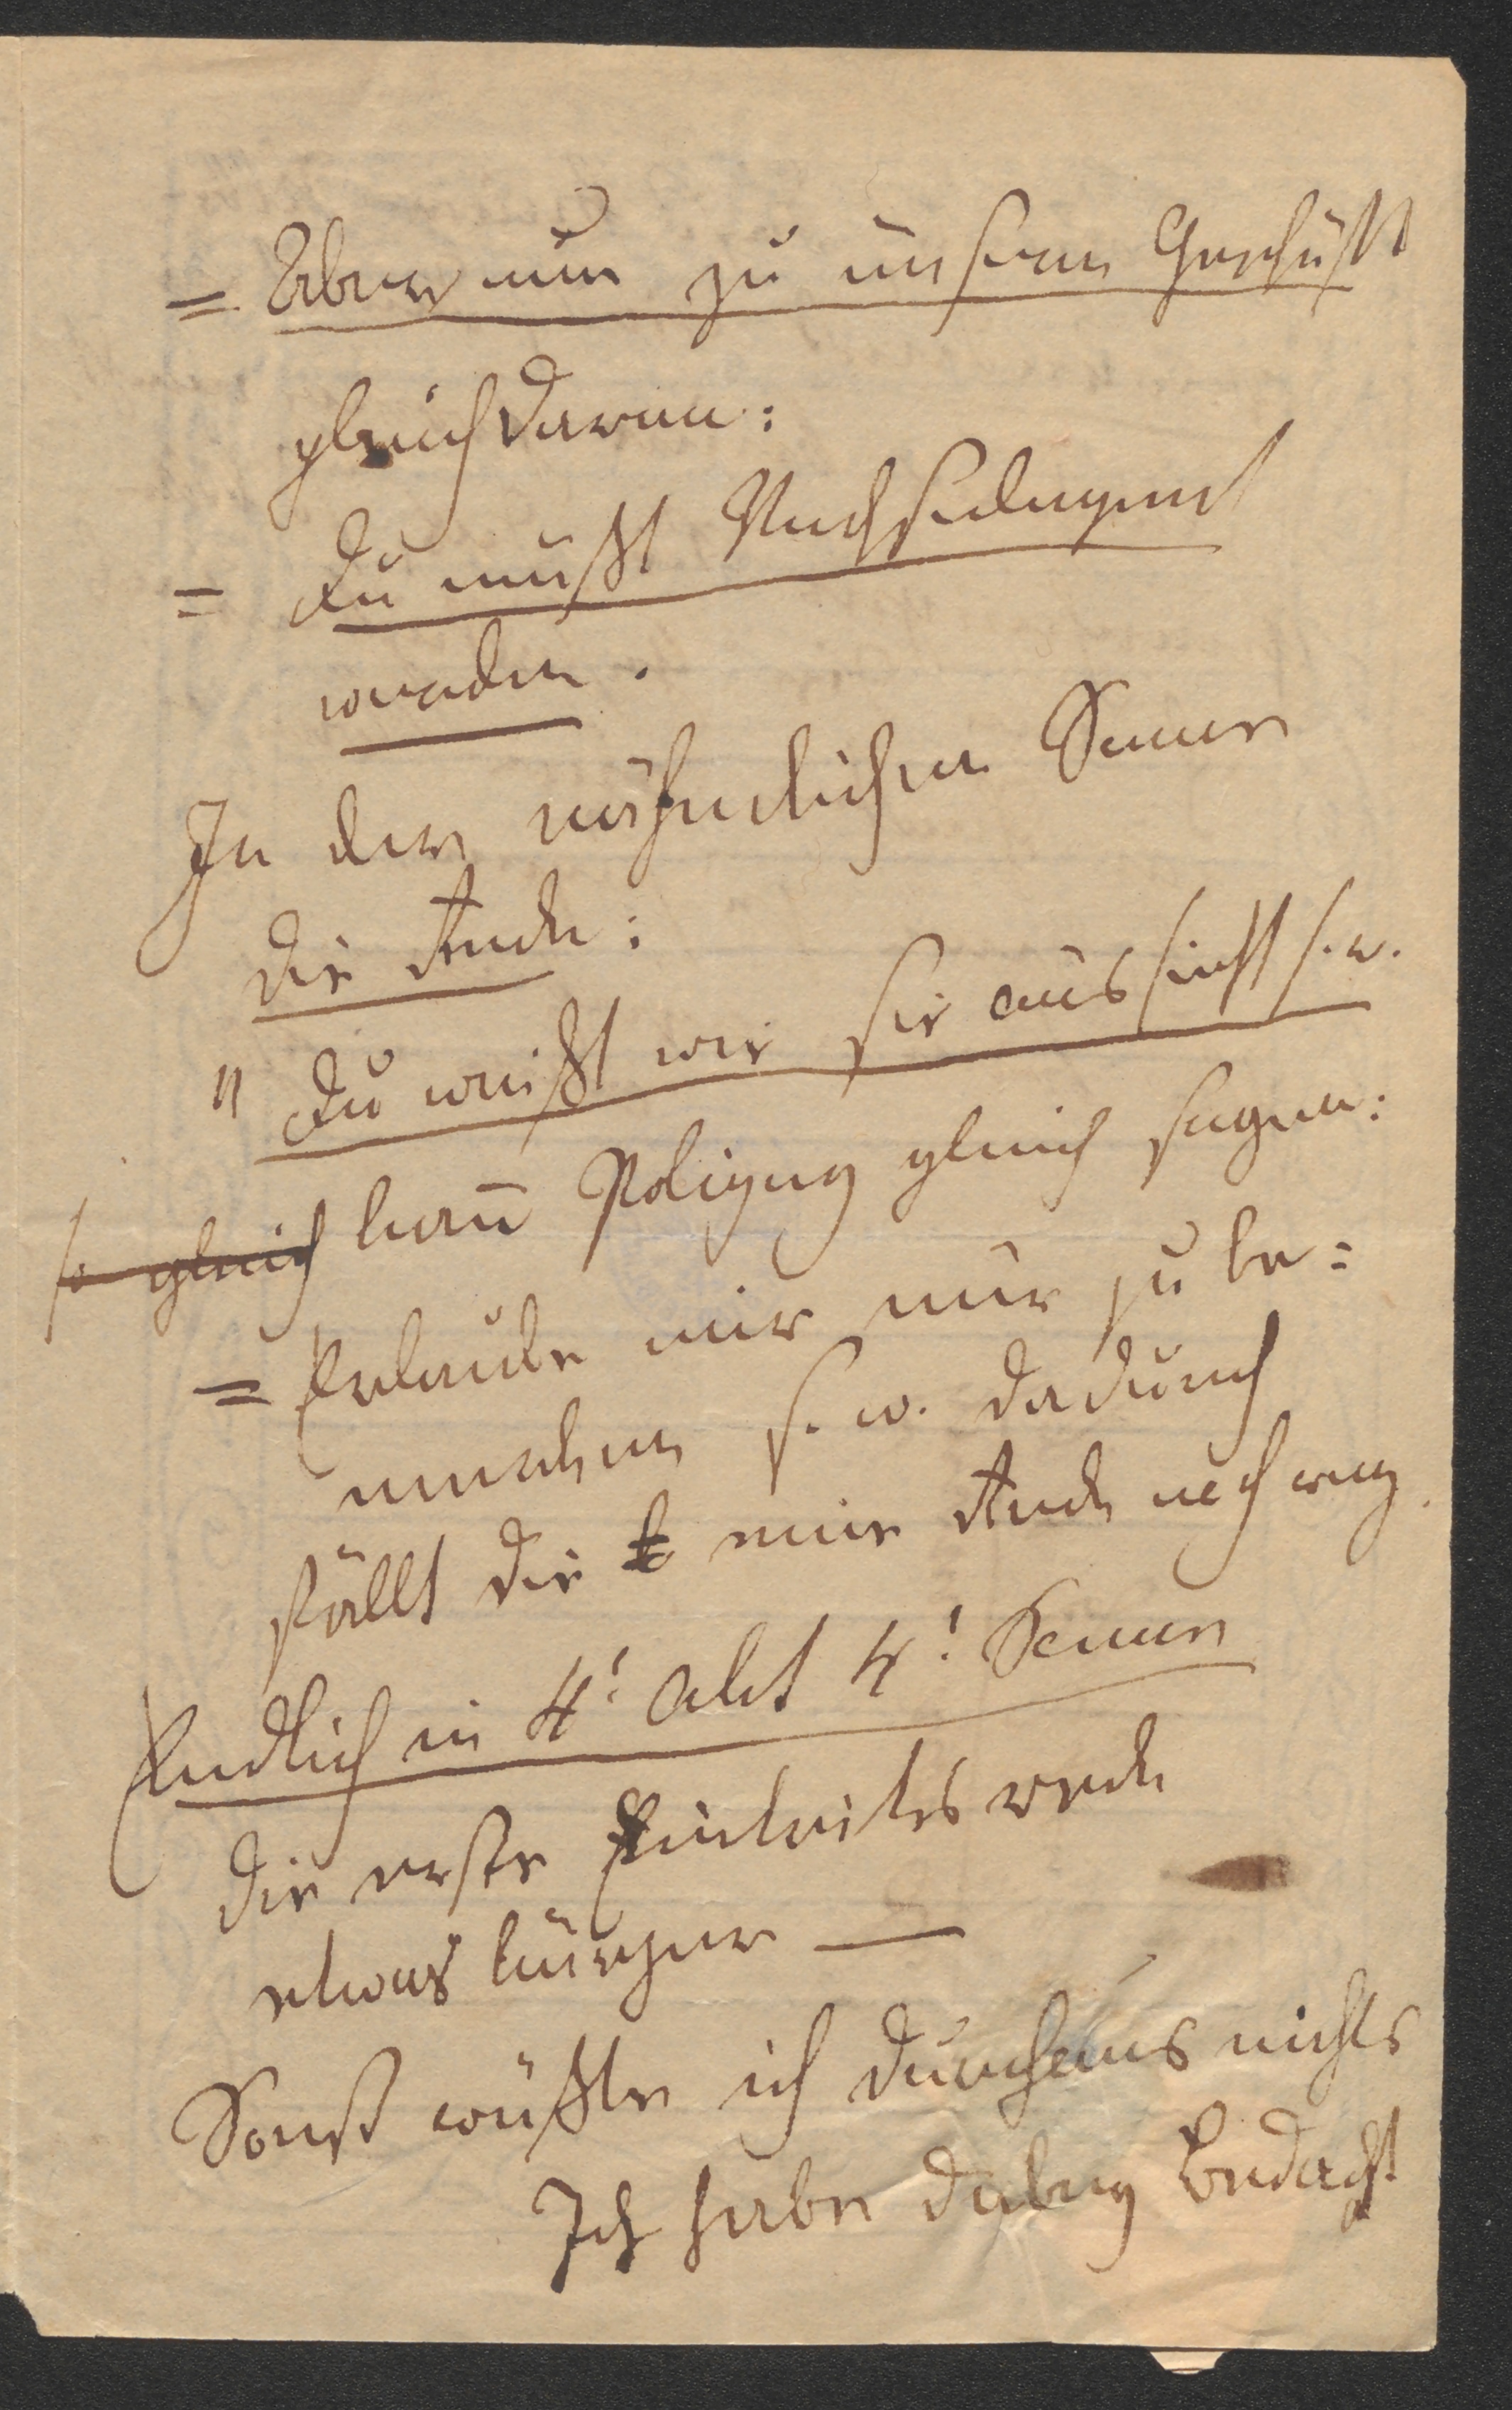 = Aber nun zu unserm Geschäft
gleich daran:
= Du mußt Nachfolgend
werden.
In der nöhmlichen Scene
die Rede:
" Du weißt wie sie aussieht s. w.
so gleich kann Poligny gleich sagen:
= Erlaube mir nur zu be=
merken s. w. dadurch
fällt die eine Rede noch weg.
Endlich in 4! Akt 4! Scene
die erste Eintrittsrede
etwas kürzer —
Sonst wüßte ich durchaus nichts
Ich habe dabey Bedacht